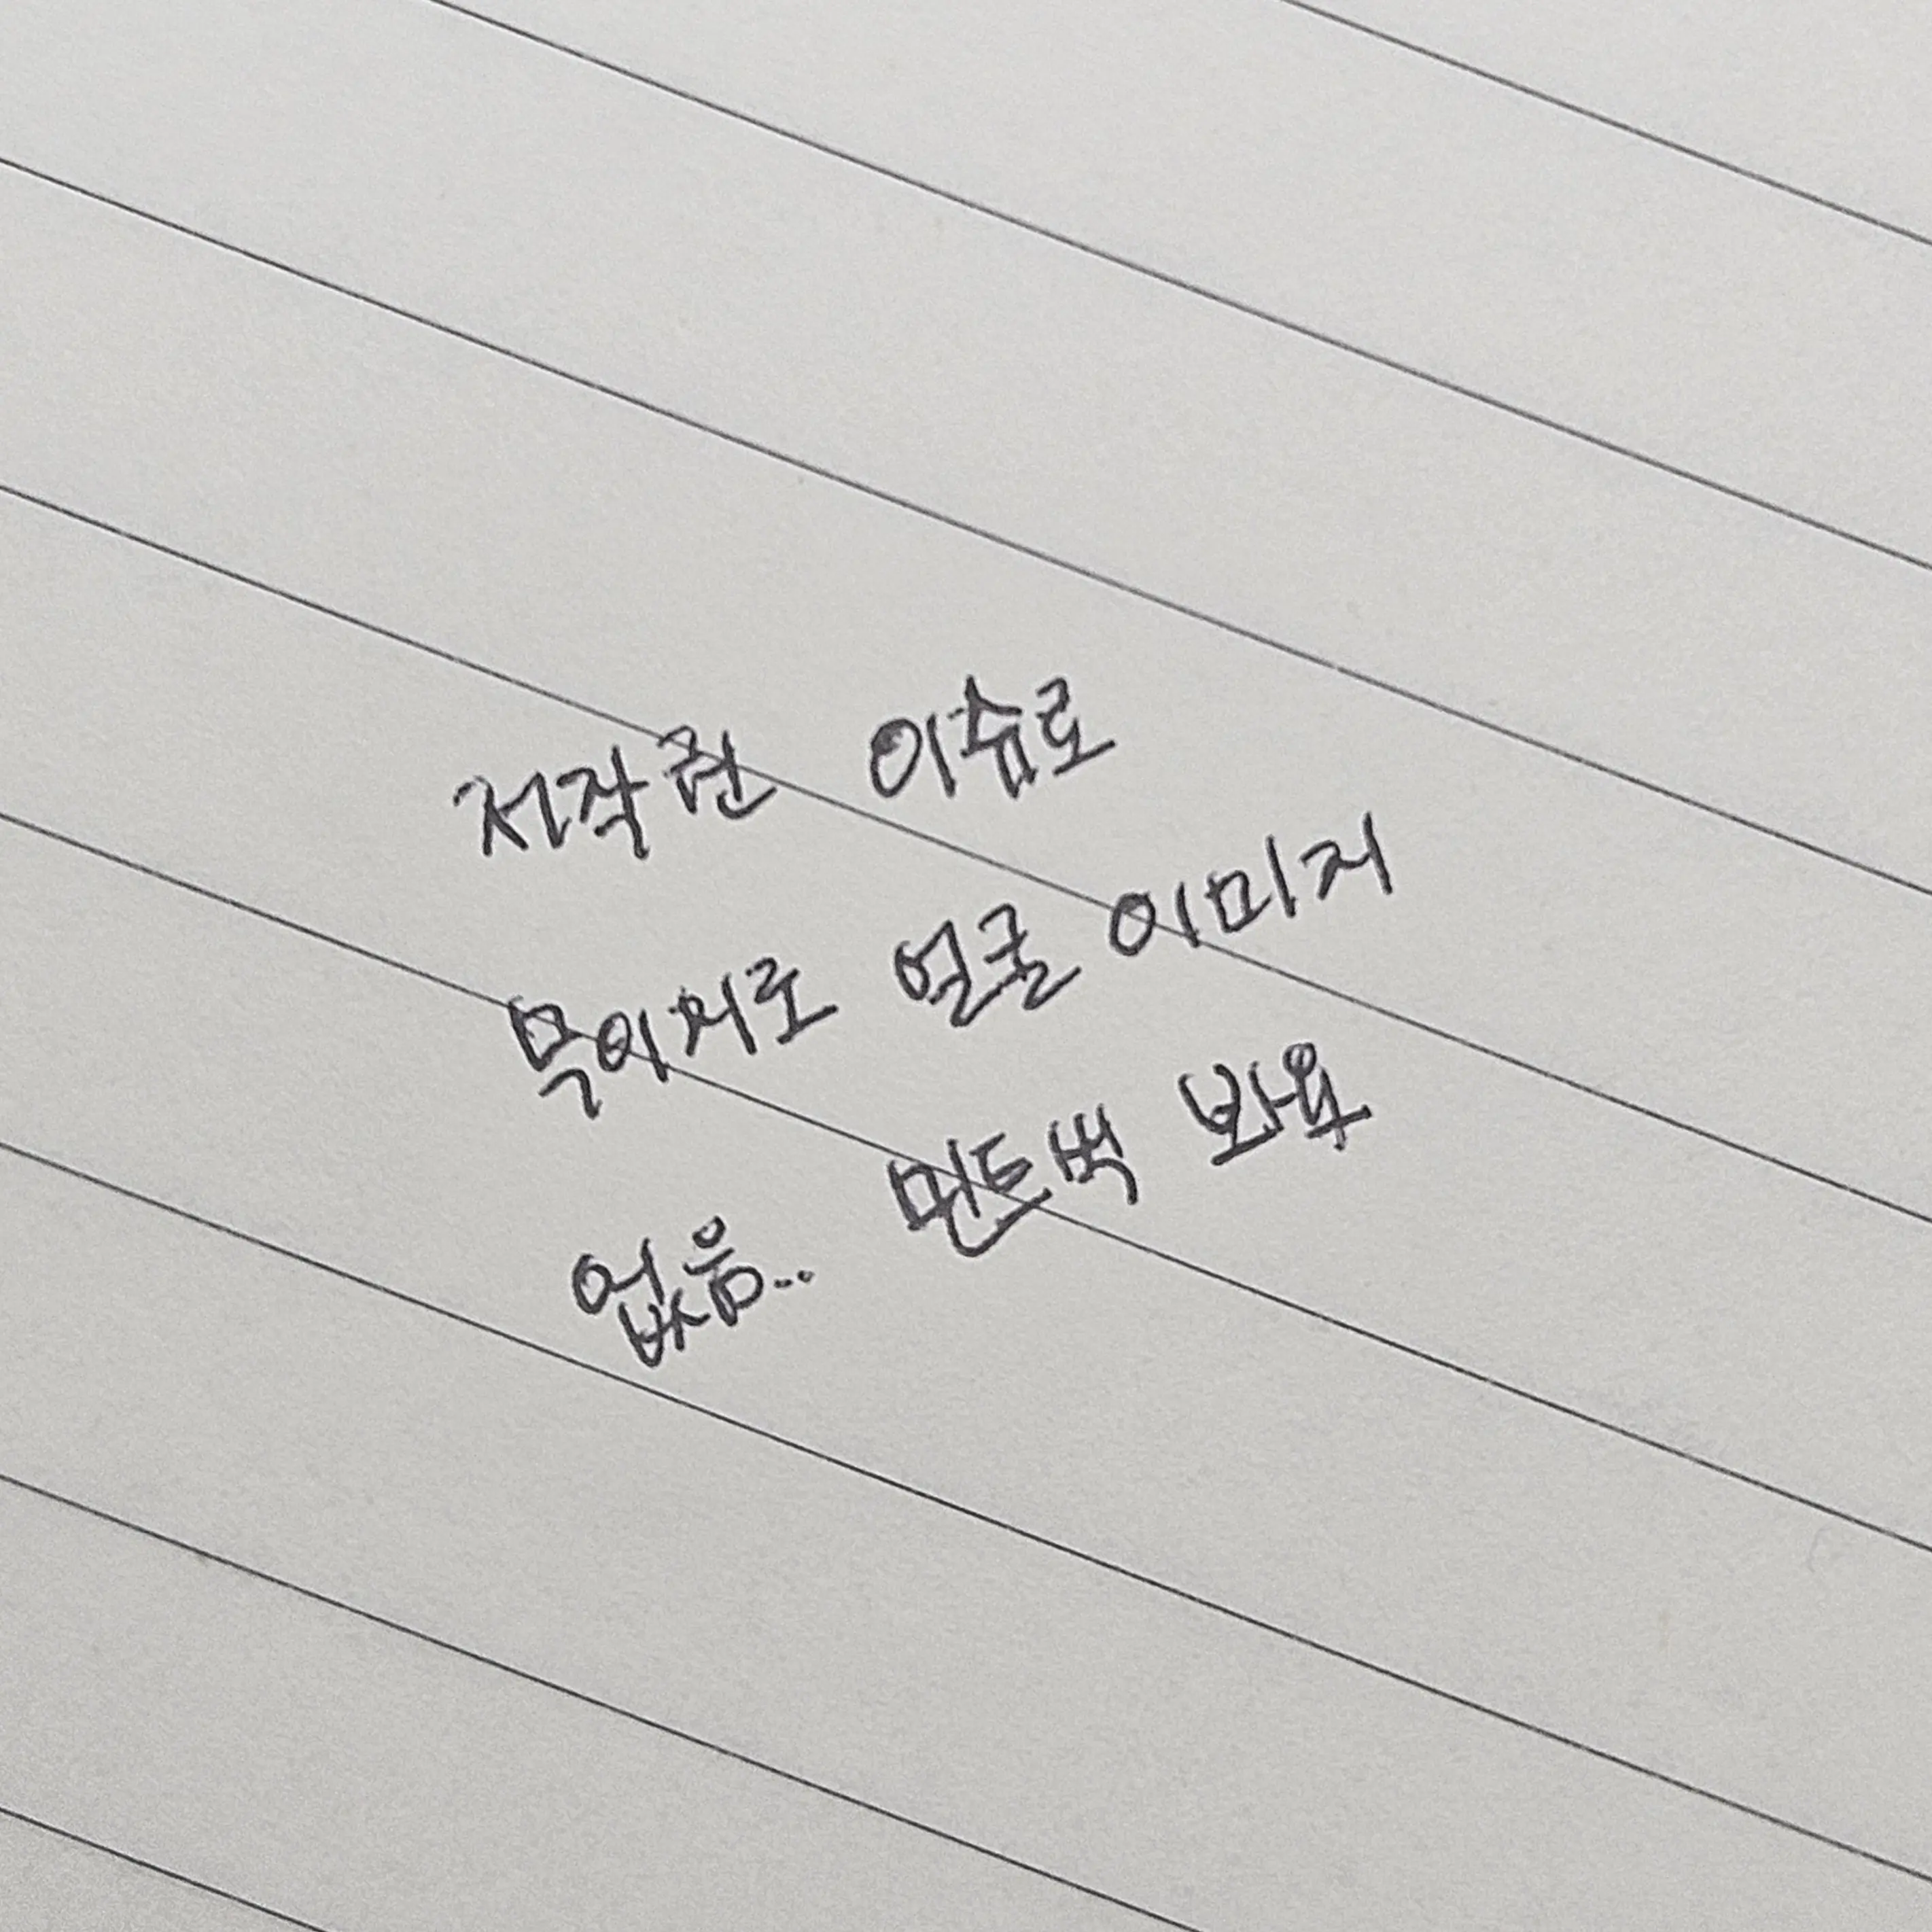 저작권 이슈로
무이지로 얼굴 이미지
없음.. 민트벅 봐욥